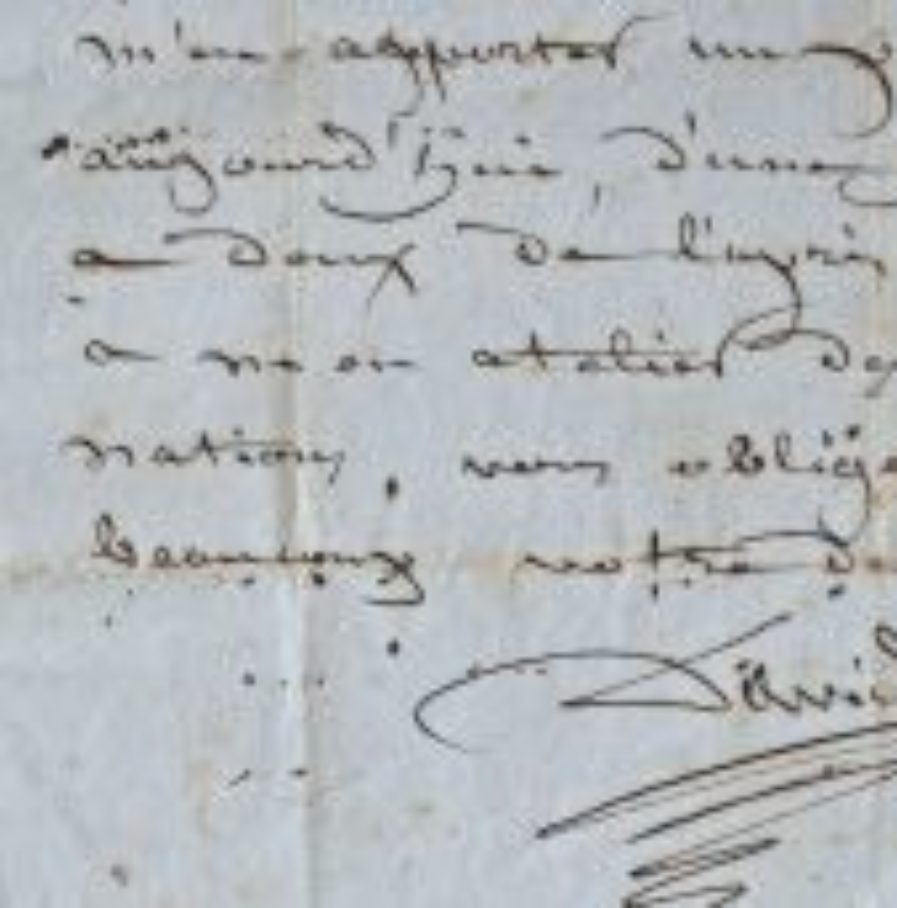 m'en apporter un
aujourd'hui, d'une
a deux de l'après
a mon atelier
nation, vous oblige
beaucoup votre de
David